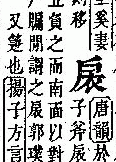 奚妻
則移
扆
唐韻於
子斧扆
負之而南面以對
牖閒謂之扆郭璞
又箑也揚子方言